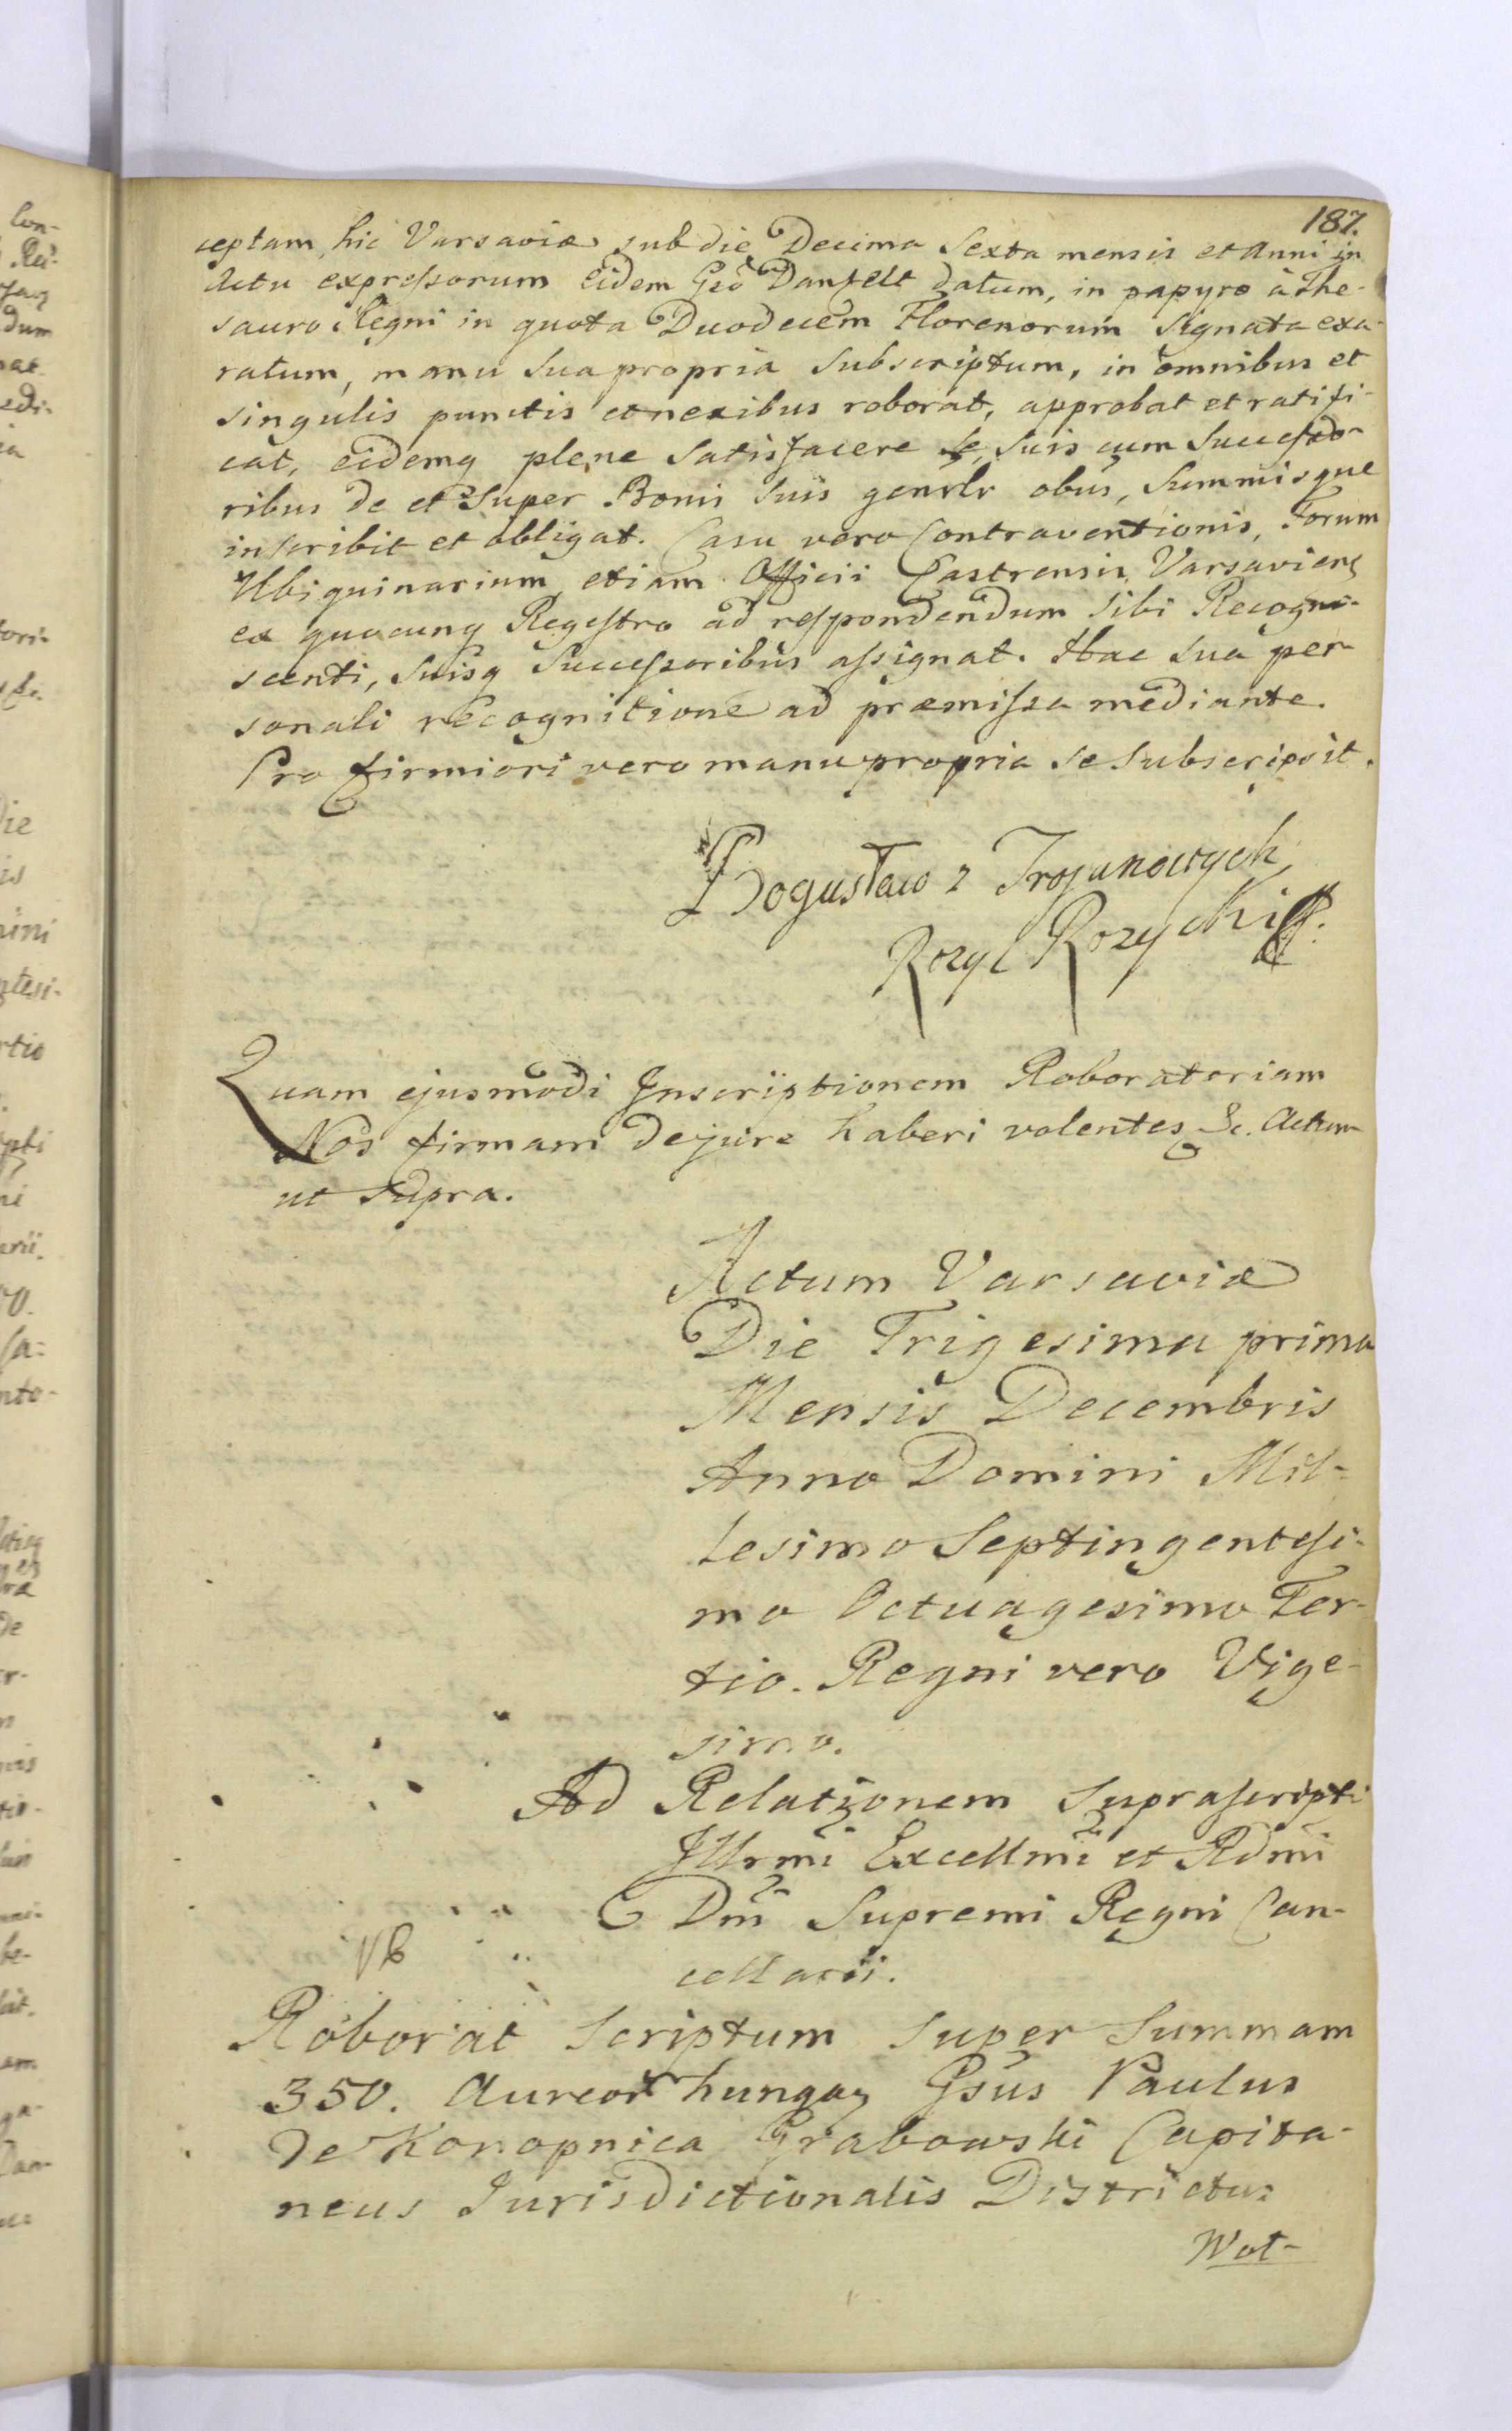 187.
ceptam, hic Varsaviæ sub die Decima Sexta mensis et Anni in
Actu expressorum eidem Gso Danfelt datum, in papyro à The-
sauro Regni in quota Duodecem Florenorum Signata exa-
ratum, manu sua propria Subscriptum, in omnibus et
singulis punctis et nexibus roborat, approbat et ratifi-
cat, eidemq plene Satisfacere se, suis cum Successo-
ribus de et super Bonis suis genrlr obus, Summisque
inscribit et obligat. Casu vero Contraventionis, Forum
Ubiquinarium etiam Officii Castrensis Varsaviens
ex quocunq Regestro ad respondendum sibi Recogno-
scenti, suisq Successoribus assignat. Hac sua per
sonali recognitione ad præmissa mediante.
Pro firmiori vero manu propria se subscripsit.
Bogusław z Trojanowych
Rozyc Rozycki
Quam ejusmodi Inscriptionem Roboratoriam
Nos firmam de jure haberi volentes &c. Actum
ut supra.
Actum Varsaviæ
Die Trigesima prima
Mensis Decembris
Anno Domini Mil-
lesimo Septingentesi-
mo Octuagesimo Ter-
tio. Regni vero Vige-
simo.
Ad Relationem suprascripti
Illrmi Excellmi et Rdmi
Dni Supremi Regni Can-
cellarii.
Roborat scriptum super Summam
350. Aureor hungar Gsus Paulus
de Konopnica Grabowski Capita-
neus Jurisdictionalis Districtus
Wot-